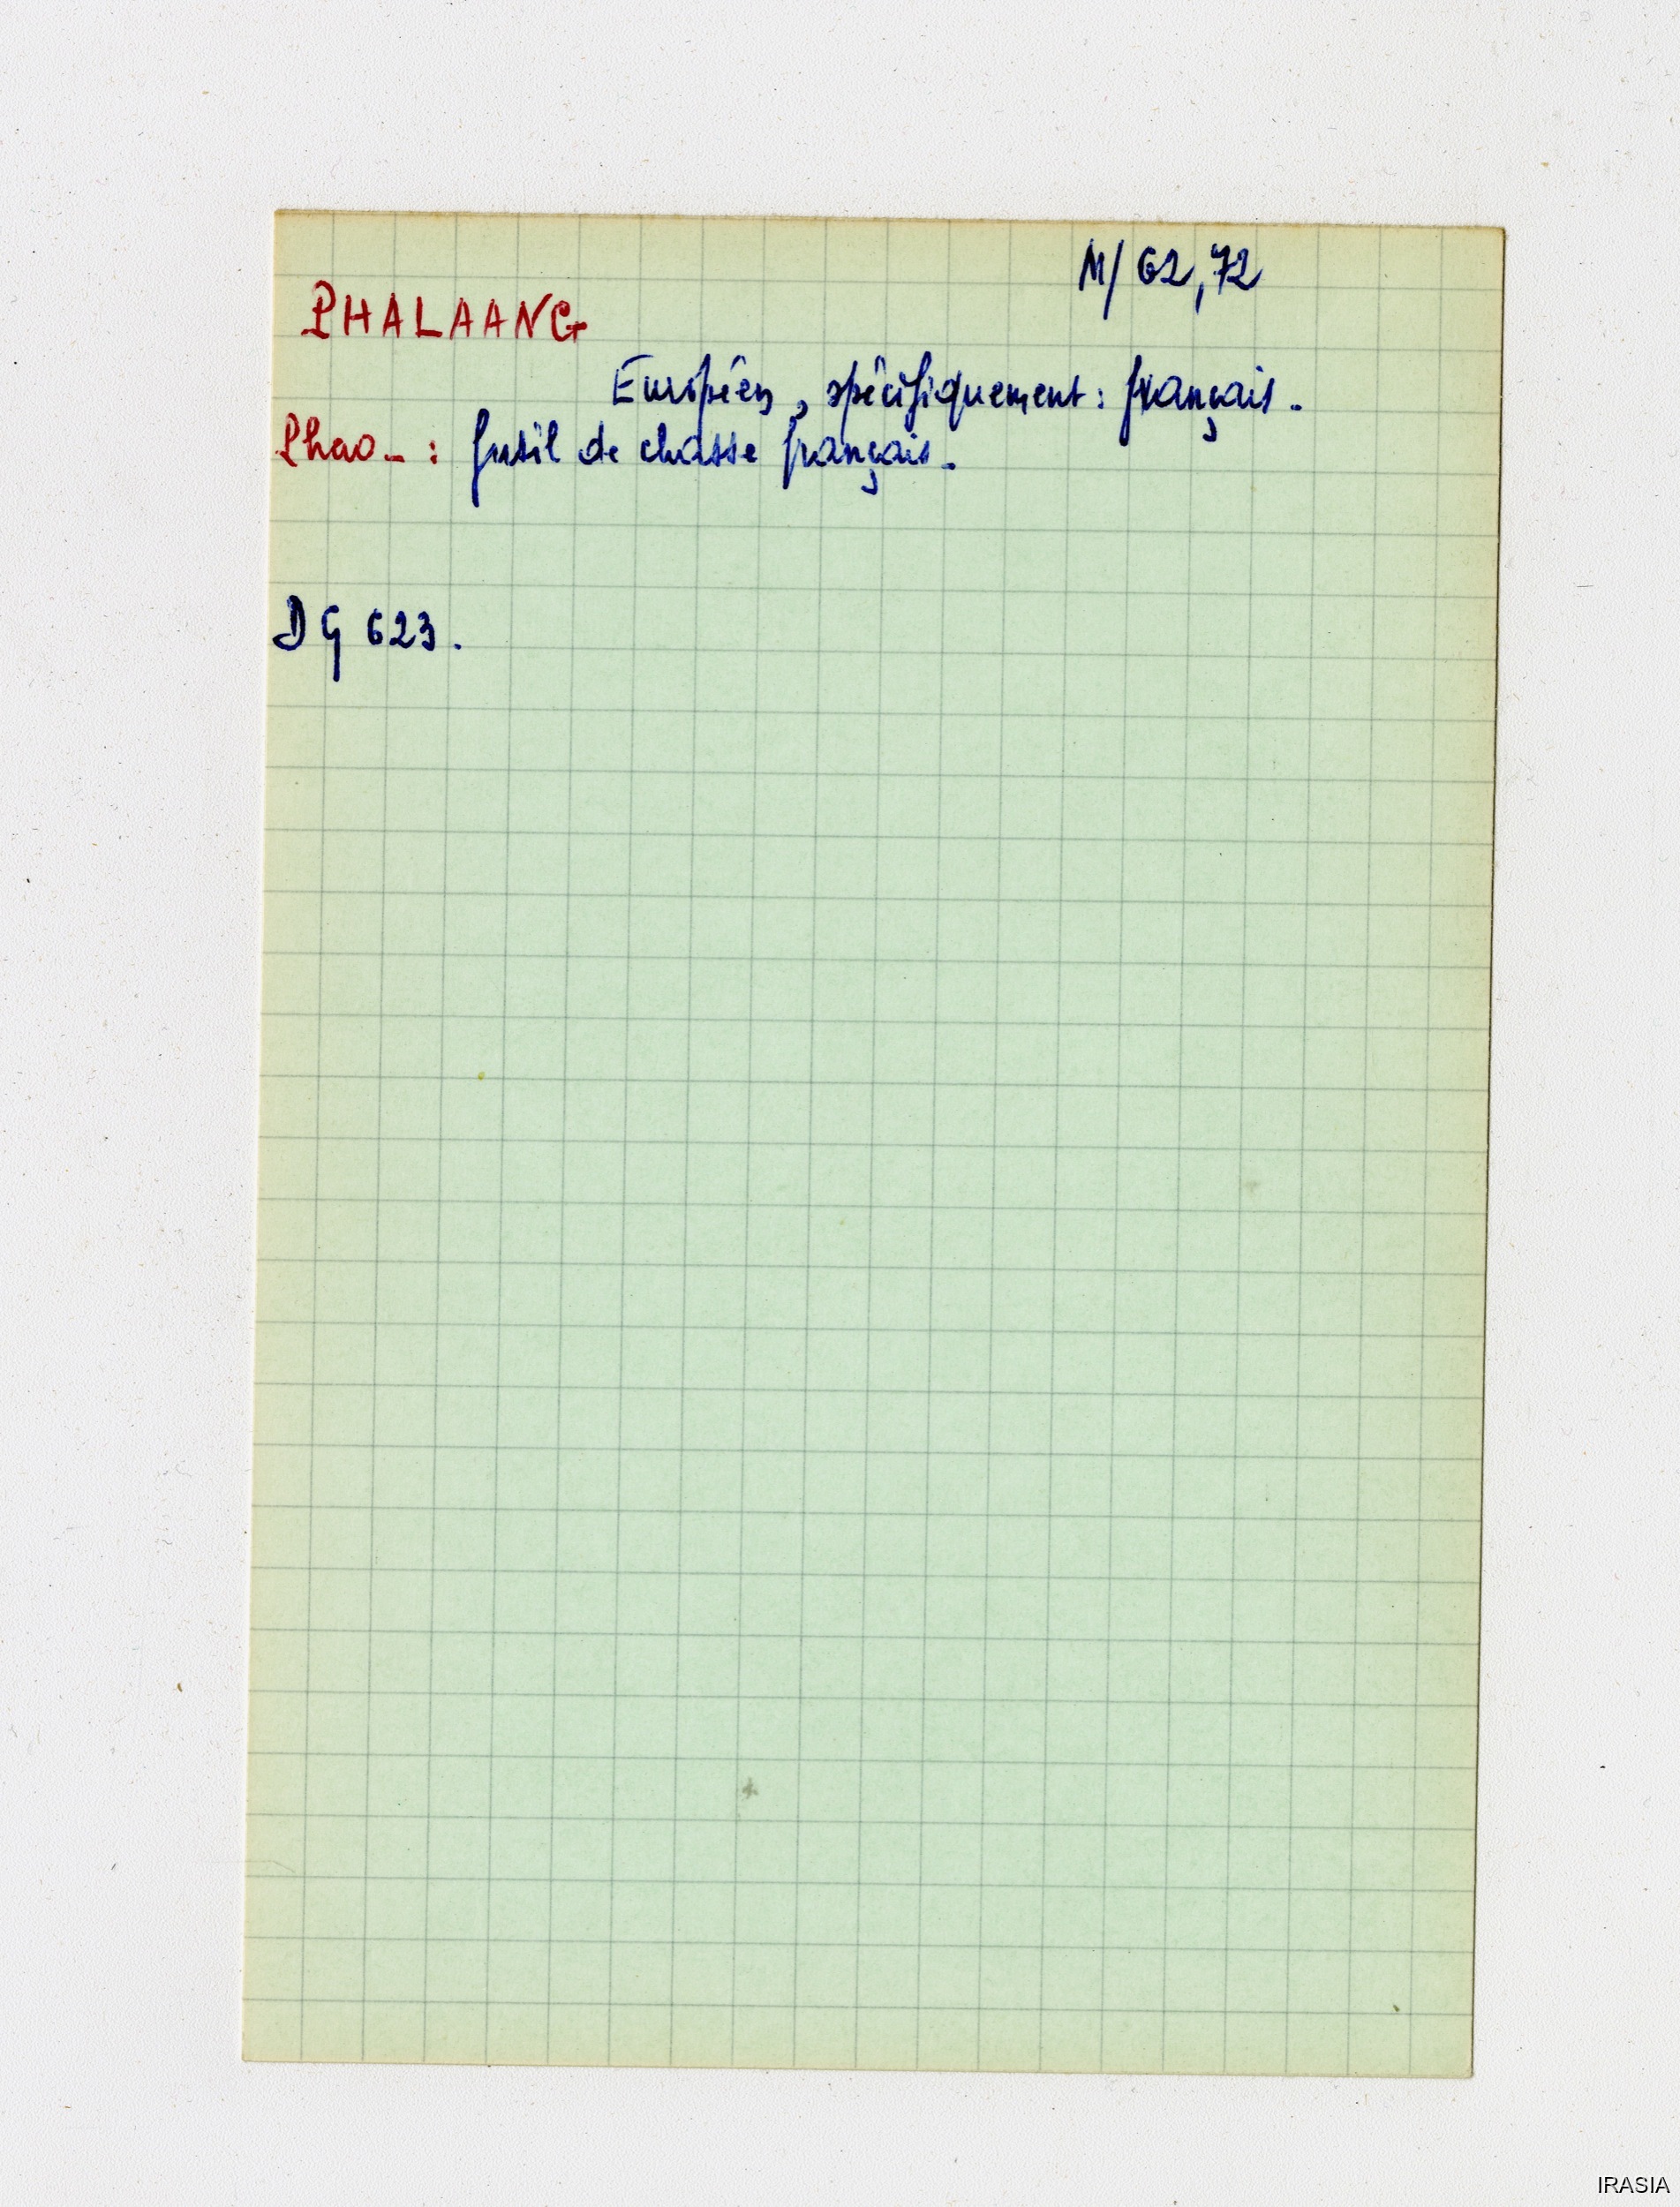 M/ 62, 72
PHALAANG
Européen, spécifiquement : français.
Phao_ : fusil de chasse français.
DG 623.
IRASIA